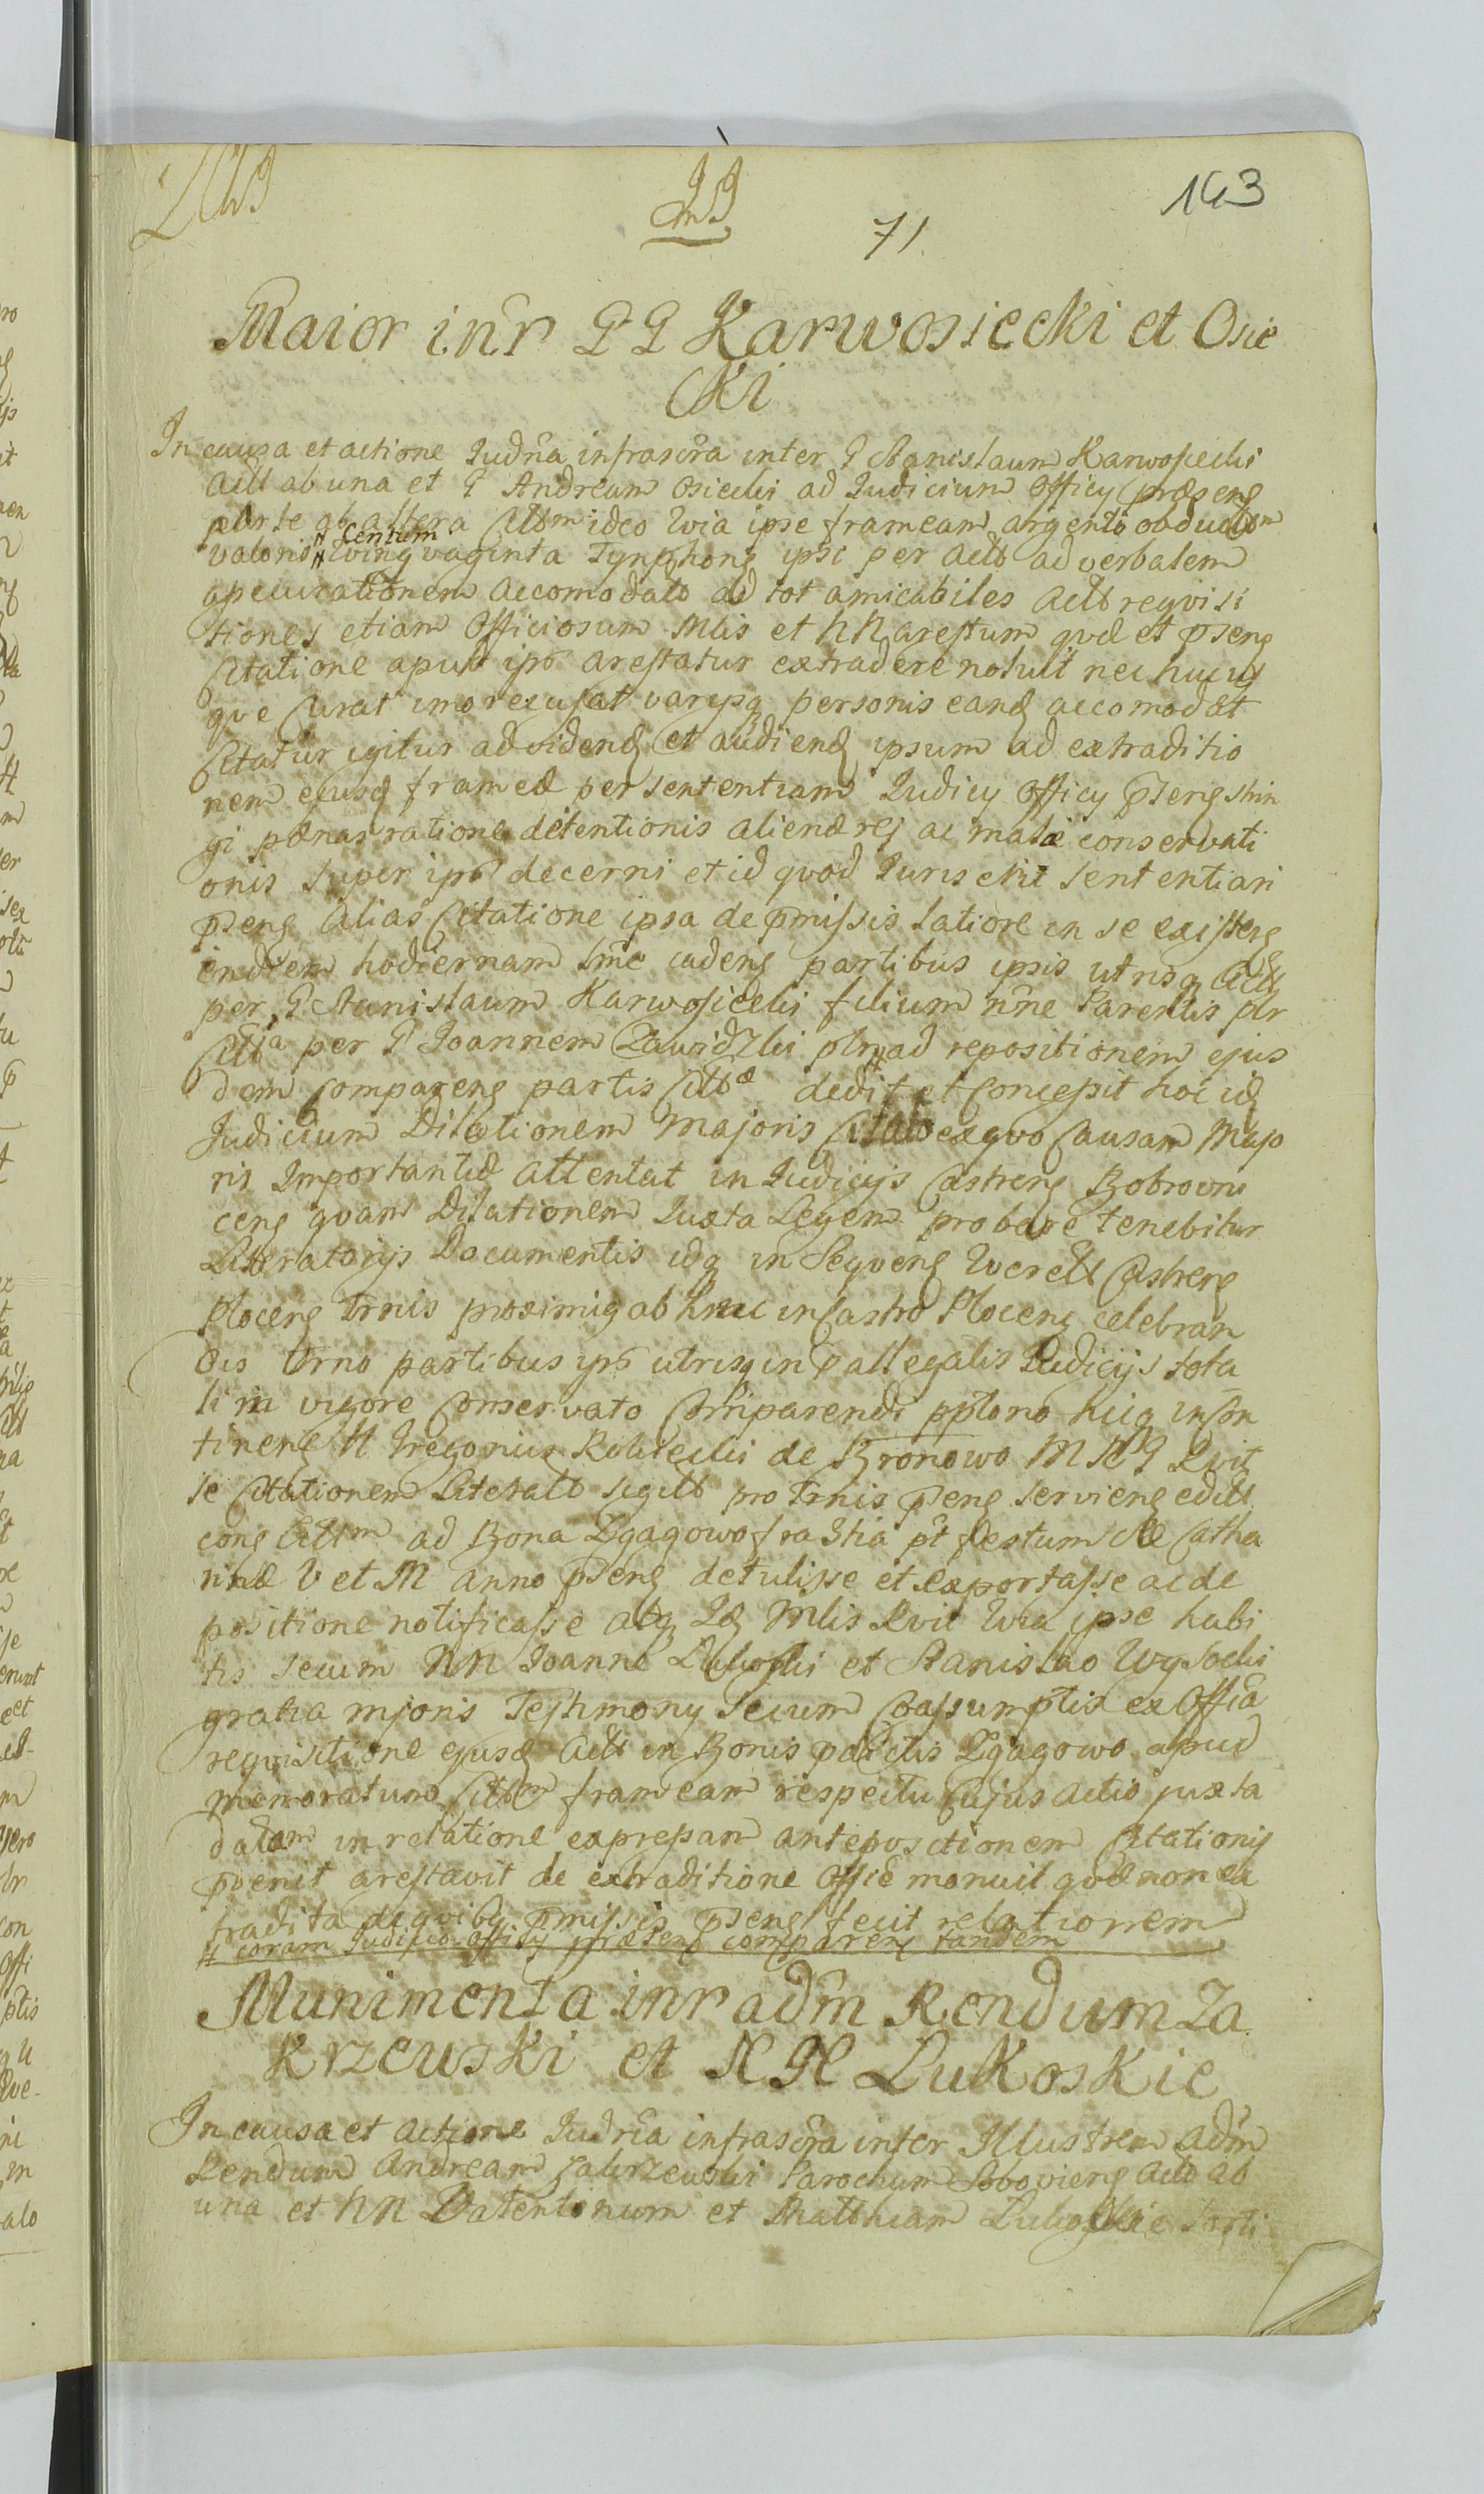 143
71
Maior inr GG Karwosiecki et Osie
cki
In causa et actione Judria infrascra inter G Stanislaum Karwosiecki
Actt ab una et G Andream Osiecki ad Judicium Officy præseng
parte ab altera Cittm ideo quia ipse frameam argento obductm
valoris # centum qvinqvaginta Tynphong ipsi per Actt ad verbalem
apecurationem accomodato ad tot amicabiles Actt reqvisi
tiones etiam Officiosum Mlis et NN arestum qvæ et pseng
Citatione apud ips arestatur extradere noluit nec hucus
qve Curat imo recusat varysq personis eand accomodat
Citatur igitur ad vidend et audiend ipsum ad extraditio
nem ejusd frameæ per sententiam Judicy Officy pseng strin
gi pænas ratione detentionis alienæ rej ac malæ conservati
onis super ips decerni et id qvod Juris erit sententiari
pseng alias Citatione ipsa de pmissis latiore in se existeng
in diem hodiernam tmc cadeng partibus ipsis utrisq Actt
per G Stanislaum Karwosiecki filium nne Parentis plr
Citta per G Joannem Zawidzki plr # ad repositionem ejus
dem compareng partis Cittæ dedit et Concessit hoc id
Judicium Dilationem Majoris Citato exqvo Causam Majo
ris Importantiæ attentat in Judicijs Castreng Bobrowni
ceng qvam Dilationem Juxta Legem probare tenebitur
Literatorijs Documentis idq in Seqveng Qverell Castreng
Ploceng trnis proximis ab hinc in Castro Ploceng celebran
dis trno partibus ips utrisq in pallegatis Judicijs tota
li in vigore conservato Comparendi pptorio hucq in con
tineng H Gregorius Rokicki de Bronowo M RG Rvit
se Citationem Literatt sigill pro trnis pseng servieng editt
cong Cittm ad Bona Zgagowo fra 3tia pt festum Stæ Catha
rinæ V et M anno pseng detulisse et exportasse ac de
positione notificasse atq Id Mlis Rvit qvia ipse habi
tis secum NN Joanne Lukoski et Stanislao Wysocki
gratia mjoris Testimony secum Coassumptis ex Offica
reqvisitione ejusd Actt in Bonis pdictis Zgagowo apud
memoratum Cittm frameam respectu Cujus actio juxta
datam in relatione expressam antepositionem Citationis
pvenit arestavit de extraditione Offie monuit qvæ non ex
tradita de qvibq pmissis pseng fecit relationem
# coram Judicio Officy præseng compareng tandem
Munimenta inr adm Rendum Za
krzewski et NN Lukoskie
In causa et actione Judria infrascra inter Illustrem Adm
Rendum Andream Zakrzewski Parochum Soboviens Actt ab
una et NN Valentinum et Matthiam Lukoskie